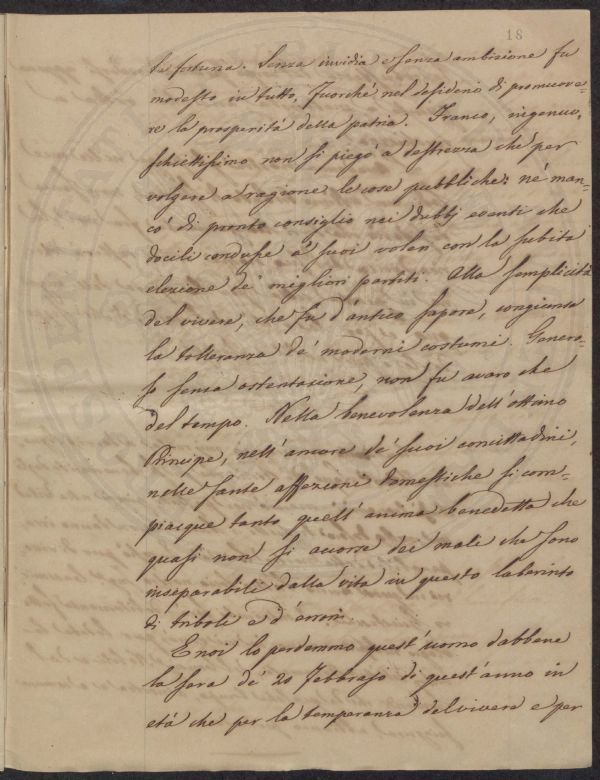 18
la fortuna. Senza invidia e senza ambizione fu
modesto in tutto, fuorché nel desiderio di promuove-
re la prosperità della patria. Franco, ingenuo,
schiettissimo non si piegò a destrezza che per
volgere a ragione le cose pubbliche: né man-
cò di pronto consiglio nei dubbj eventi che
docili condusse a' suoi voleri con la subita
elezione de' migliori partiti. Alla semplicità
del vivere, che fu d'antico sapore, congiunse
la tolleranza de' moderni costumi. Genero-
so senza ostentazione, non fu avaro che
del tempo. Nella benevolenza dell'ottimo
Principe, nell'amore de' suoi concittadini,
nelle sante affezioni domestiche si com-
piacque tanto quell'anima benedetta che
quasi non si accorse dei mali che sono
inseparabili dalla vita in questo laberinto
di triboli e d'errori.
E noi lo perdemmo quest'uomo dabbene
la sera de' 20 Febbrajo di quest'anno in
età che per la temperanza del vivere e per